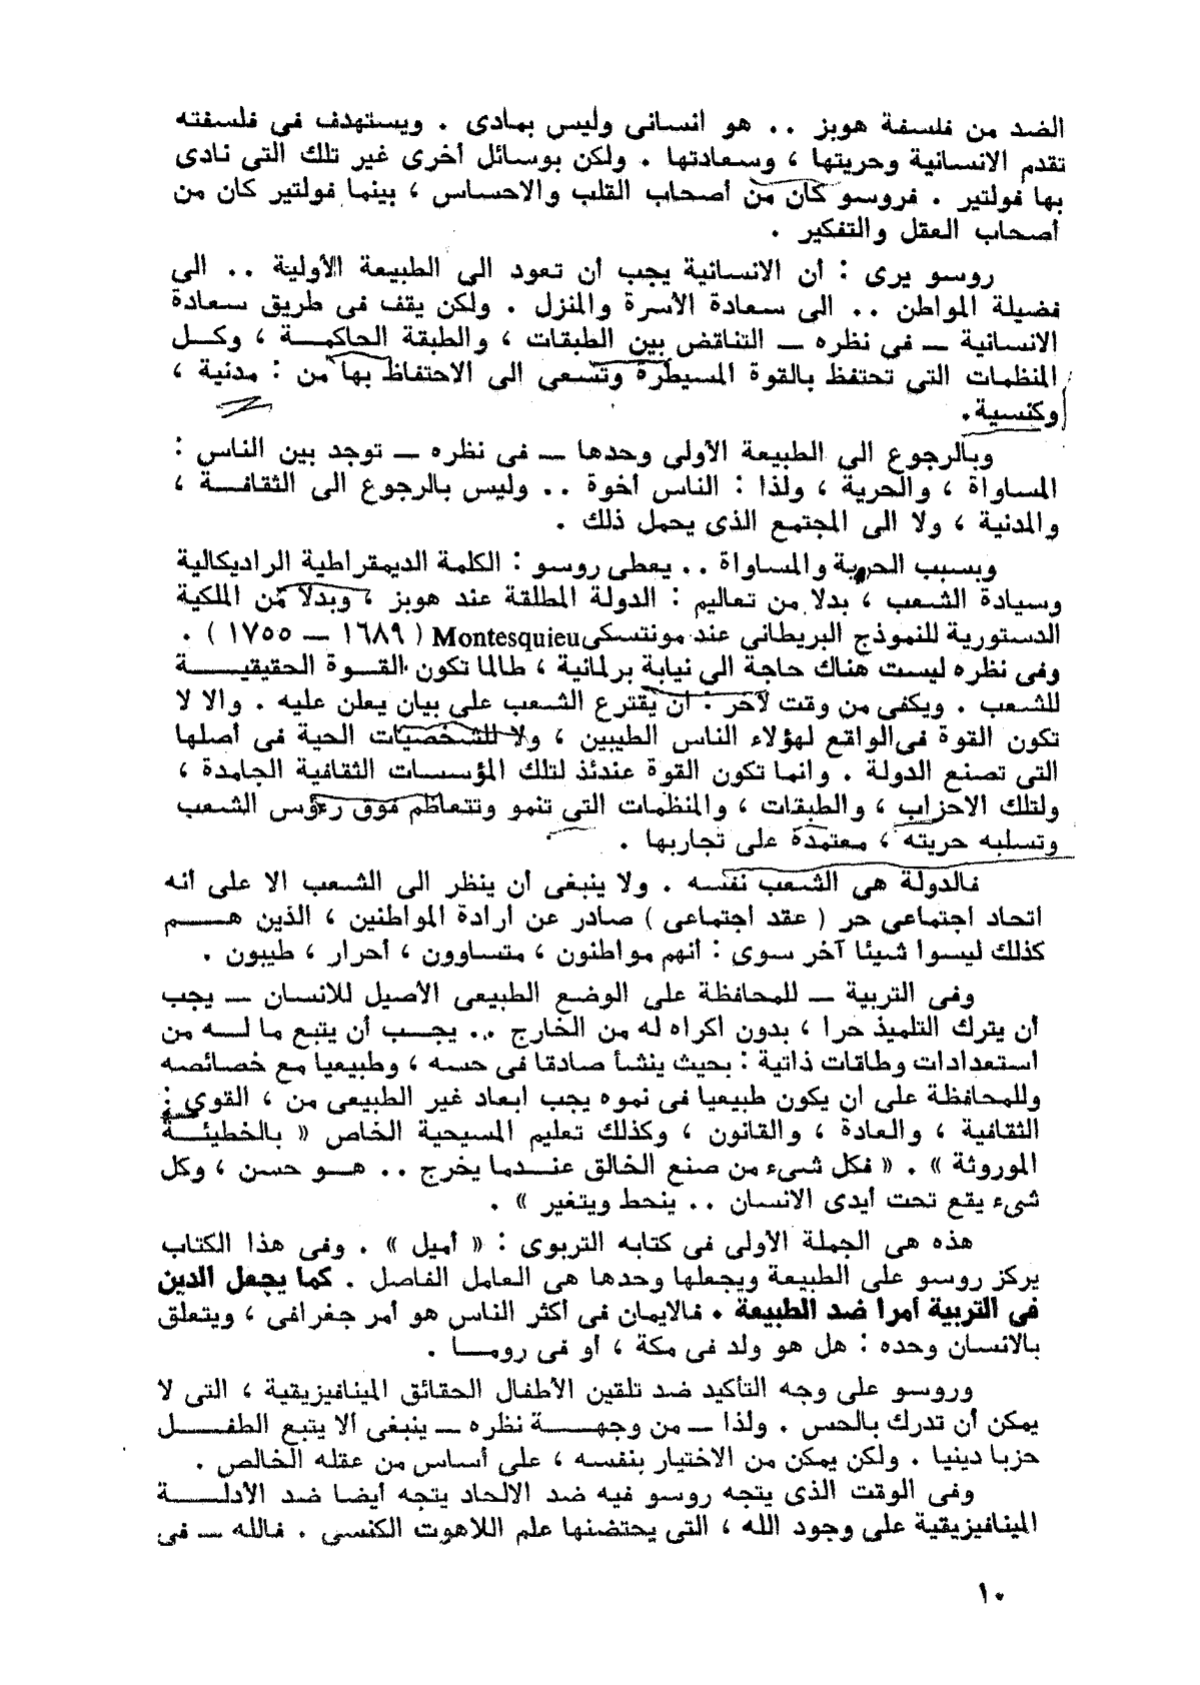 الضد من فلسفة هوبز .. هو انسانى وليس بمادى . ويستهدف فى فلسفته
تقدم الانسانية وحريتها ، وسعادتها . ولكن بوسائل أخرى غير تلك التى نادى
بها فولتير . فروسو كان من أصحاب القلب والاحساس ، بينما فولتير كان من
أصحاب العقل والتفكير .
روسو يرى : أن الانسانية يجب أن تعود الى الطبيعة الأولية .. الى
فضيلة المواطن .. الى سعادة الأسرة والمنزل . ولكن يقف فى طريق سعادة
الانسانية ــ فى نظره ــ التناقض بين الطبقات ، والطبقة الحاكمـــة ، وكــل
المنظمات التى تحتفظ بالقوة المسيطرة وتسعى الى الاحتفاظ بها من : مدنية ،
وكنسية .
وبالرجوع الى الطبيعة الأولى وحدها ــ فى نظره ــ توجد بين الناس :
المساواة ، والحرية ، ولذا : الناس أخوة .. وليس بالرجوع الى الثقافــة ،
والمدنية ، ولا الى المجتمع الذى يحمل ذلك .
وبسبب الحرية والمساواة .. يعطى روسو : الكلمة الديمقراطية الراديكالية
وسيادة الشعب ، بدلا من تعاليم : الدولة المطلقة عند هوبز ، وبدلا من الملكية
الدستورية للنموذج البريطانى عند مونتسكى Montesquieu ( ١٦٨٩ ــ ١٧٥٥ ) .
وفى نظره ليست هناك حاجة الى نيابة برلمانية ، طالما تكون القــوة الحقيقيــــة
للشعب . ويكفى من وقت لآخر : أن يقترع الشعب على بيان يعلن عليه . والا لا
تكون القوة فى الواقع لهؤلاء الناس الطيبين ، ولا للشخصيات الحية فى أصلها
التى تصنع الدولة . وانما تكون القوة عندئذ لتلك المؤسسات الثقافية الجامدة ،
ولتلك الاحزاب ، والطبقات ، والمنظمات التى تنمو وتتعاظم فوق رءوس الشعب
وتسلبه حريته ، معتمدة على تجاربها .
فالدولة هى الشعب نفسه . ولا ينبغى أن ينظر الى الشعب الا على أنه
اتحاد اجتماعى حر ( عقد اجتماعى ) صادر عن ارادة المواطنين ، الذين هـــم
كذلك ليسوا شيئا آخر سوى : أنهم مواطنون ، متساوون ، أحرار ، طيبون .
وفى التربية ــ للمحافظة على الوضع الطبيعى الأصيل للانسان ــ يجب
أن يترك التلميذ حرا ، بدون اكراه له من الخارج .. يجــب أن يتبع ما لــه من
استعدادات وطاقات ذاتية : بحيث ينشأ صادقا فى حسه ، وطبيعيا مع خصائصه
وللمحافظة على ان يكون طبيعيا فى نموه يجب ابعاد غير الطبيعى من ، القوى :
الثقافية ، والعادة ، والقانون ، وكذلك تعليم المسيحية الخاص « بالخطيئــة
الموروثة » . « فكل شىء من صنع الخالق عنــدما يخرج .. هــو حسن ، وكل
شىء يقع تحت أيدى الانسان .. ينحط ويتغير » .
هذه هى الجملة الأولى فى كتابه التربوى : « أميل » . وفى هذا الكتاب
يركز روسو على الطبيعة ويجعلها وحدها هى العامل الفاصل . كما يجعل الدين
فى التربية أمرا ضد الطبيعة . فالايمان فى أكثر الناس هو أمر جغرافى ، ويتعلق
بالانسان وحده : هل هو ولد فى مكة ، أو فى رومــا .
وروسو على وجه التأكيد ضد تلقين الأطفال الحقائق الميتافيزيقية ، التى لا
يمكن أن تدرك بالحس . ولذا ــ من وجهــــة نظره ــ ينبغى ألا يتبع الطفـــل
حزبا دينيا . ولكن يمكن من الاختيار بنفسه ، على أساس من عقله الخالص .
وفى الوقت الذى يتجه روسو فيه ضد الالحاد يتجه أيضا ضد الأدلــــة
الميتافيزيقية على وجود الله ، التى يحتضنها علم اللاهوت الكنسى . فالله ــ فى
١٠